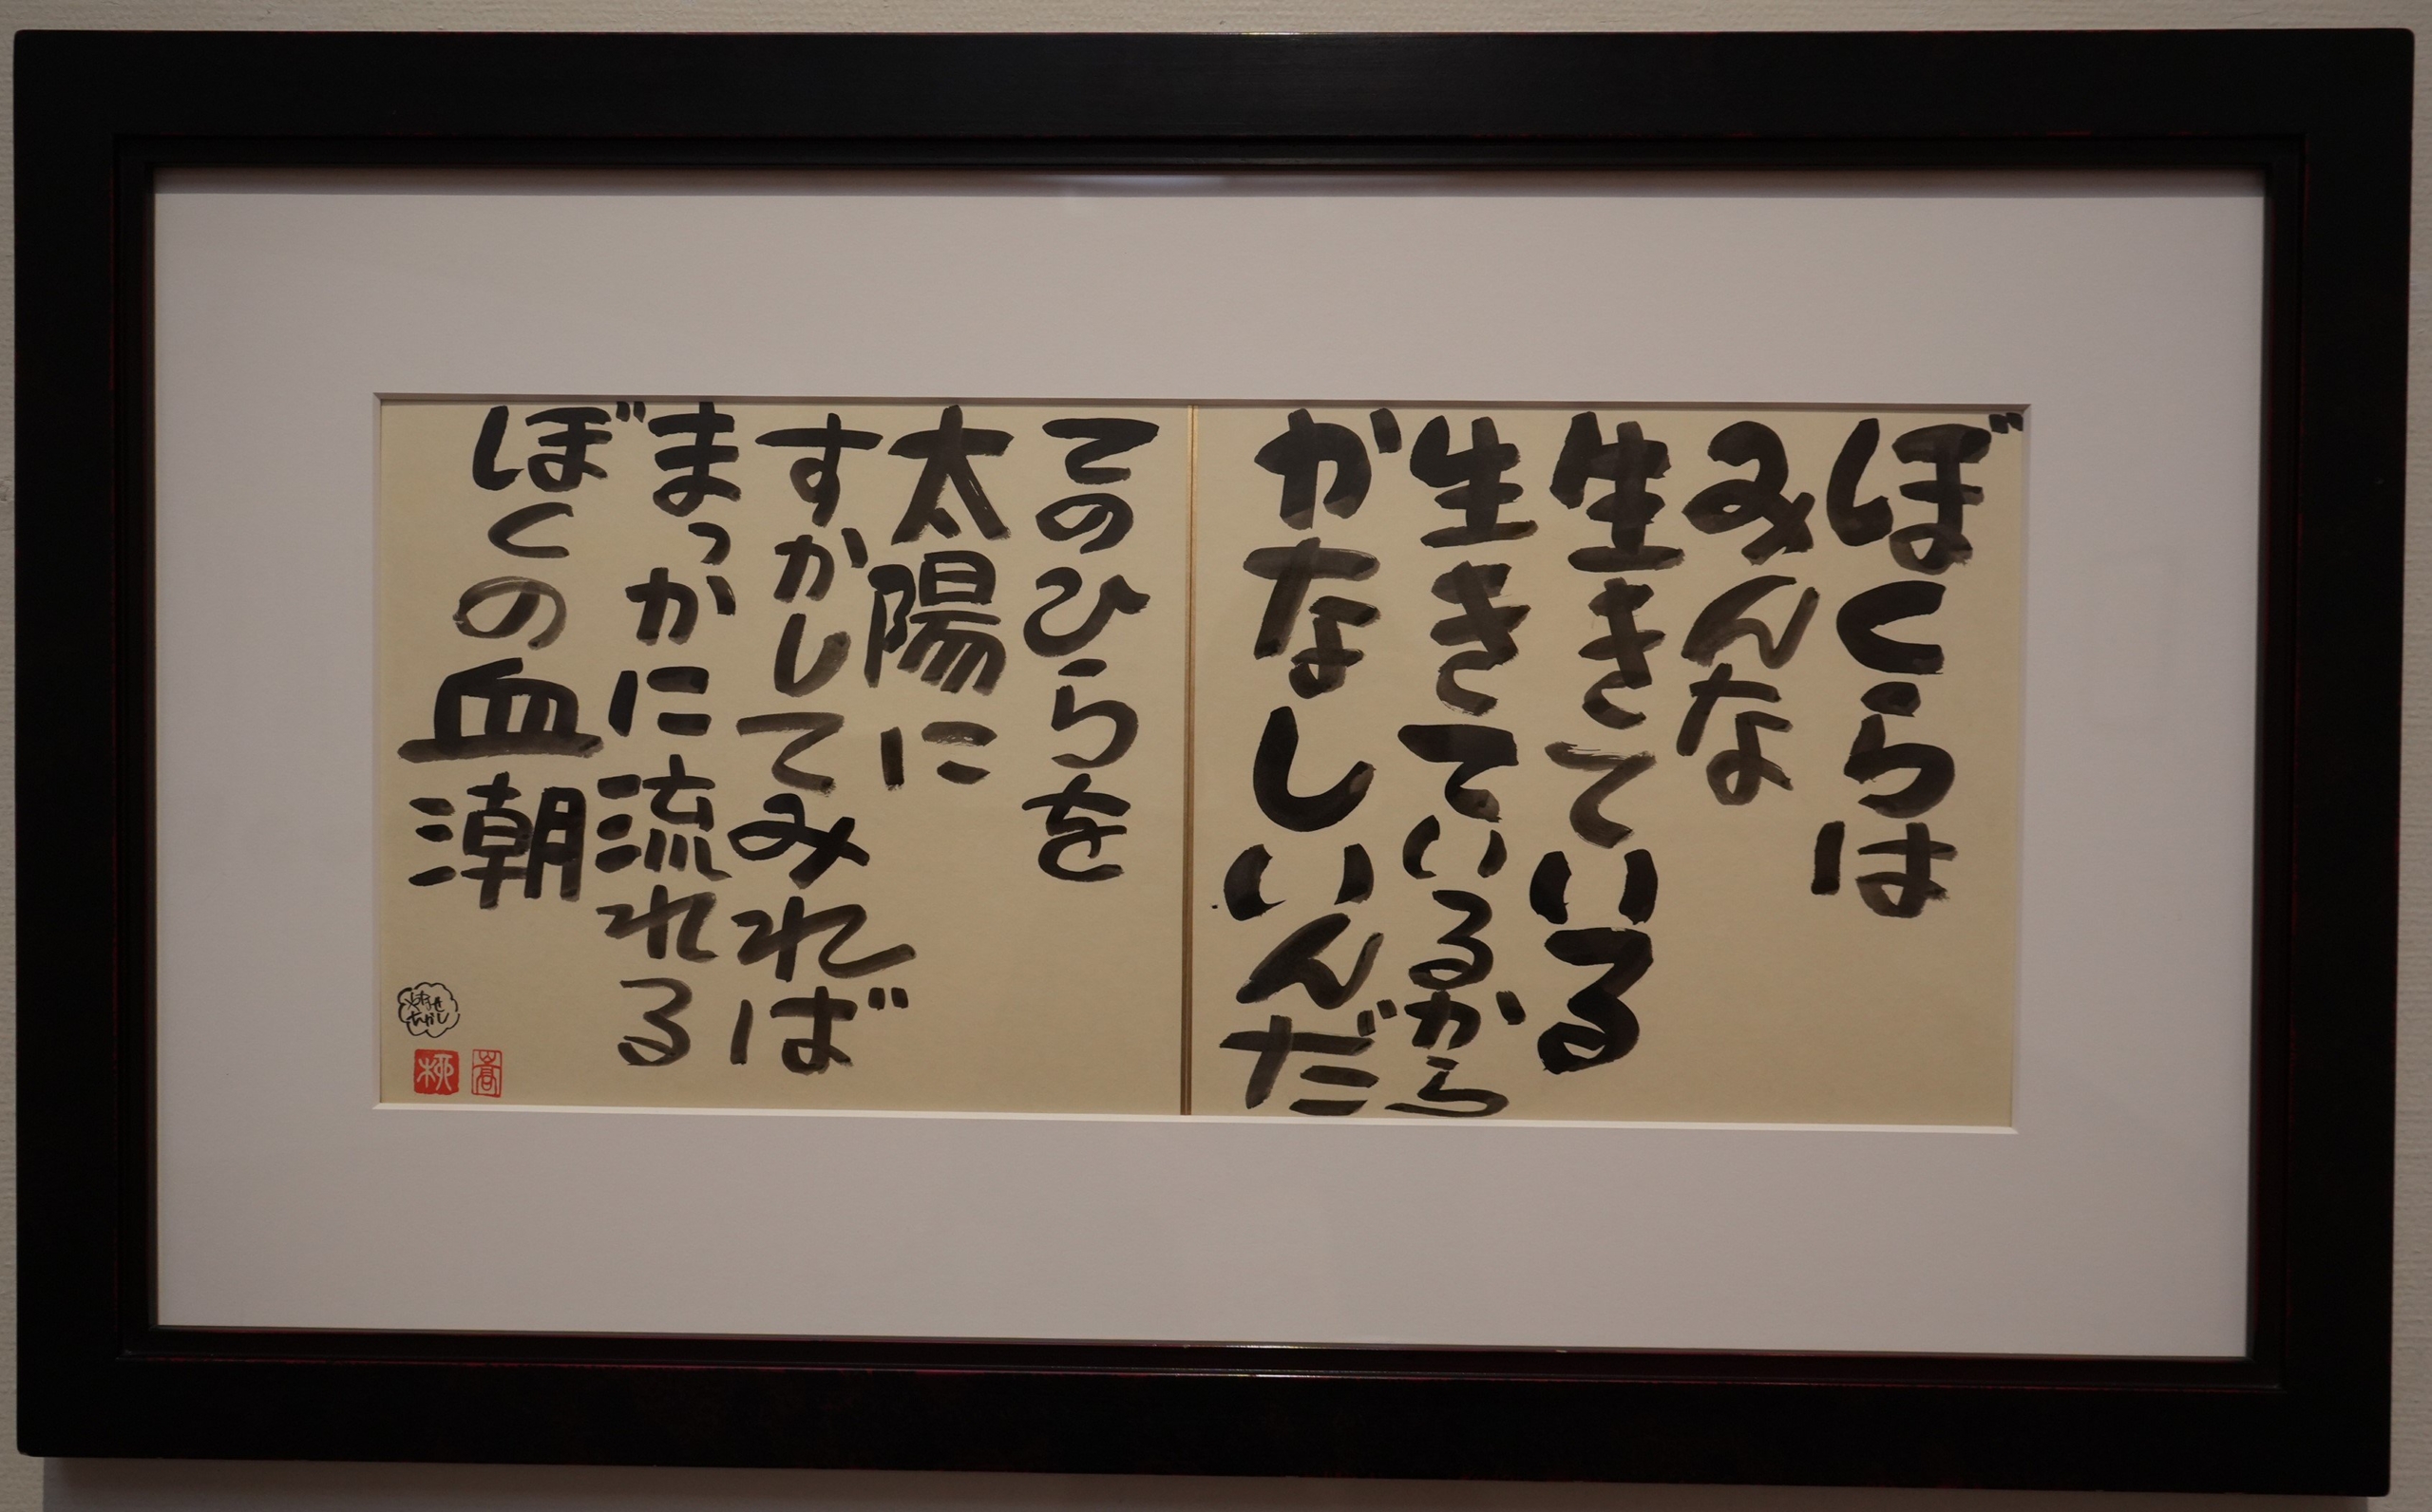 ぼくらは
みんな
生きている
生きているから
かなしいんだ
てのひらを
太陽に
すかしてみれば
まっかに流れる
ぼくの血潮
やなせ
たかし
嵩
柳